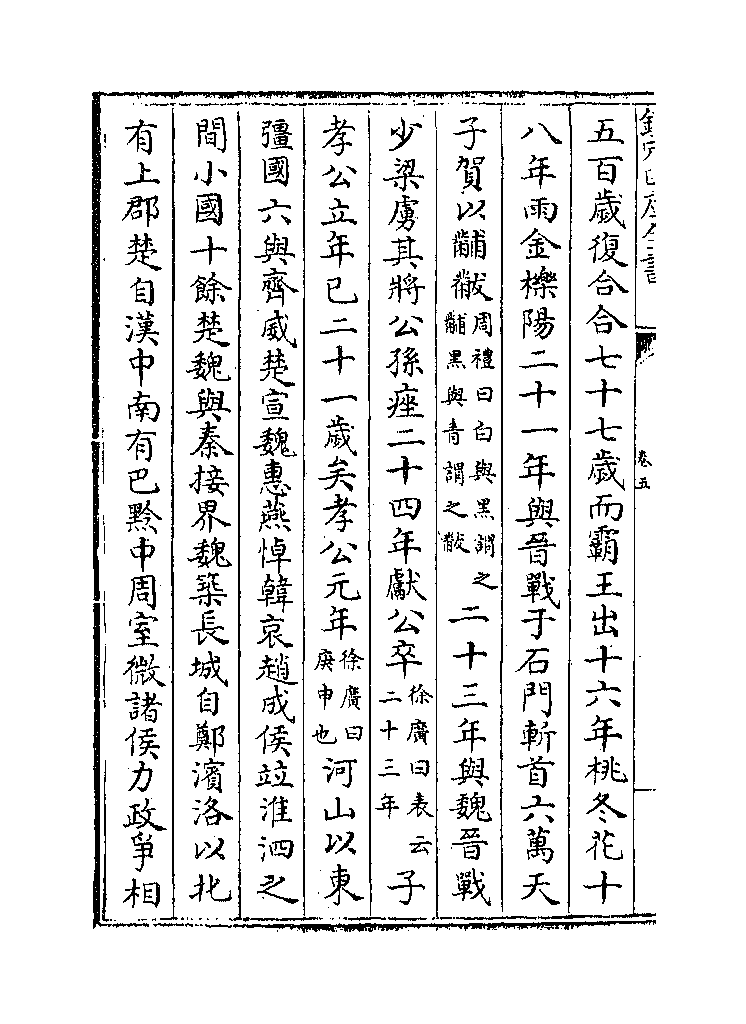 卷五
五百歲復合合七十七歲而霸王出十六年桃冬花十
八年雨金櫟陽二十一年與晉戰于石門斬首六萬天
子賀以黼黻周禮曰白與黑謂之黼黑與青謂之黻二十三年與魏晉戰
少梁虜其將公孫痤二十四年獻公卒徐廣曰表云二十三年子
孝公立年已二十一歲矣孝公元年徐廣曰庚申也河山以東
彊國六與齊威楚宣魏惠燕悼韓哀趙成侯竝淮泗之
間小國十餘楚魏與秦接界魏築長城自鄭濱洛以北
有上郡楚自漢中南有巴黔中周室微諸侯力政爭相